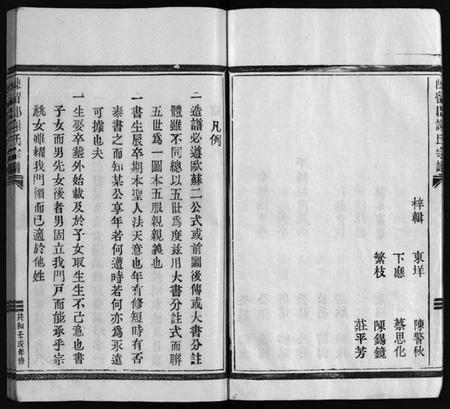 陳留郡謝氏宗譜
梓輯
東垟 陳警秋
下應 蔡思化
繁枝 陳錫鏡
莊平芳
凡例
一造譜必遵歐蘇二公式或前圖後傳或大書分註
體雖不同總以五世爲度茲用大書分註式而聨
五世爲一圖本五服親親義也
一書生辰卒期本聖人法天意也年有修短時有否
泰書之而知某公享年若何遭時若何亦爲来遠
可據也夫
一生娶卒塟外始載及於子女取生生不已意也書
子女而男先女後者男固立我門戸而能承乎宗
祧女雖耀我門楣而已適於他姓
陳留郡謝氏宗譜
共和壬戌年修